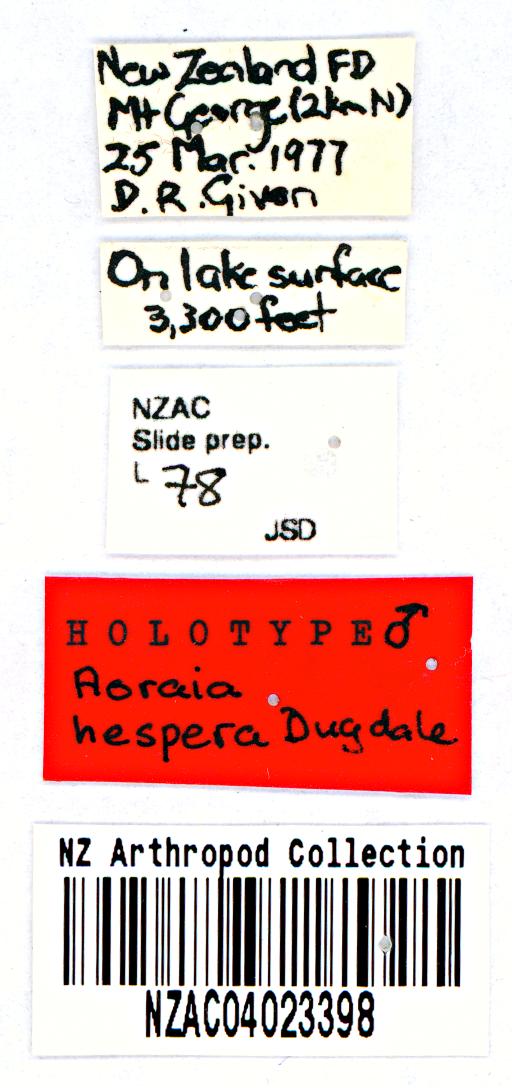 New Zealand FD
Mt George (2km N)
25 Mar. 1977
D.R. Given
On lake surface
3,300 feet
NZAC
Slide prep.
L 78
JSD
HOLOTYPE ♂
Aoraia
hespera Dugdale
NZ Arthropod Collection
NZAC04023398